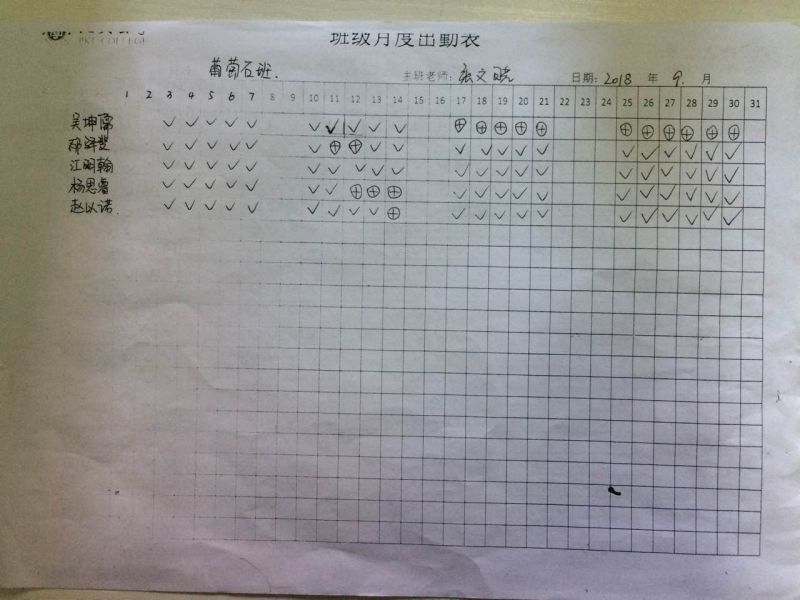 PKU COLLEGE
班级月度出勤表
葡萄石班. 主班老师: 张文晓 日期: 2018 年 9. 月
1 2 3 4 5 6 7 8 9 10 11 12 13 14 15 16 17 18 19 20 21 22 23 24 25 26 27 28 29 30 31
吴坤儒 ✓ ✓ ✓ ✓ ✓ ✓ ✓ ✓ ✓ ✓ ⊕ ⊕ ⊕ ⊕ ⊕ ⊕ ⊕ ⊕ ⊕ ⊕ ⊕
✓ ✓ ✓ ✓ ✓ ✓ ⊕ ⊕ ✓ ✓ ✓ ✓ ✓ ✓ ✓ ✓ ✓ ✓ ✓ ✓ ✓
江明翰 ✓ ✓ ✓ ✓ ✓ ✓ ✓ ✓ ✓ ✓ ✓ ✓ ✓ ✓ ✓ ✓ ✓ ✓ ✓ ✓ ✓
杨思睿 ✓ ✓ ✓ ✓ ✓ ✓ ✓ ⊕ ⊕ ⊕ ✓ ✓ ✓ ✓ ✓ ✓ ✓ ✓ ✓ ✓ ✓
赵以诺. ✓ ✓ ✓ ✓ ✓ ✓ ✓ ✓ ✓ ⊕ ✓ ✓ ✓ ✓ ✓ ✓ ✓ ✓ ✓ ✓ ✓